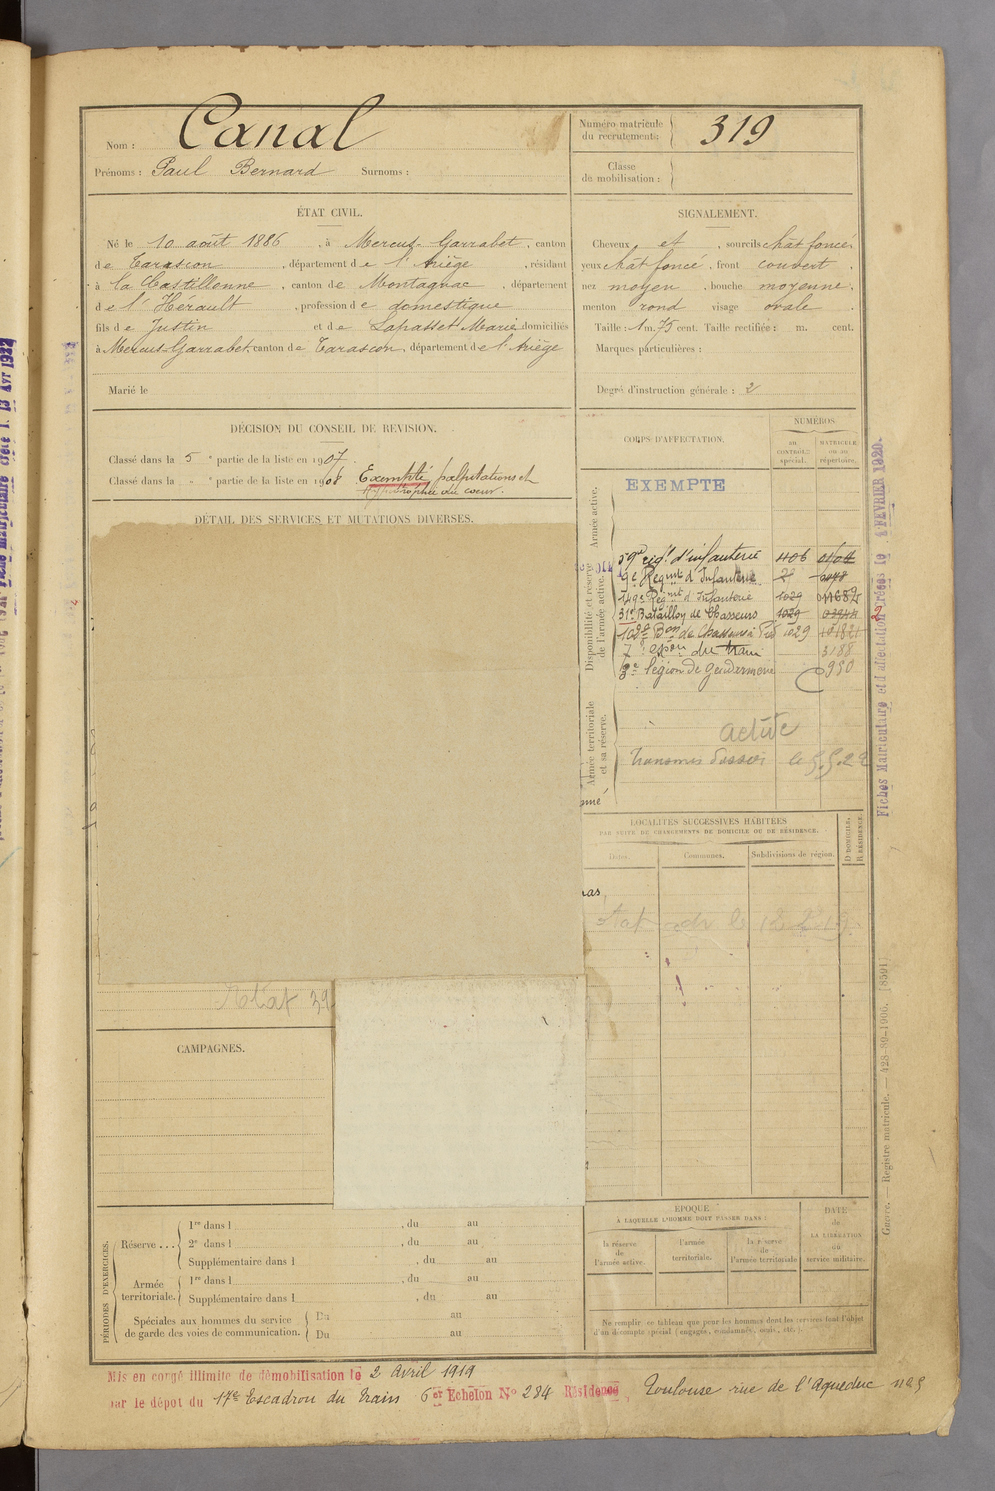 Nom : Canal
Prénoms : Paul Bernard Surnoms :
Numéro matricule du recrutement : 319
Classe de mobilisation :
ÉTAT CIVIL.
Né le 10 août 1886, à Mercus-Garrabet, canton
de Tarascon, département de l'Ariège, résidant
à la Castillonne, canton de Montagnac, département
de l'Hérault, profession de domestique
fils de Justin et de Lapasset Marie domiciliés
à Mercus-Garrabet, canton de Tarascon, département de l'Ariège
Marié le
SIGNALEMENT.
Cheveux et, sourcils chât foncé,
yeux chât foncé, front couvert,
nez moyen, bouche moyenne,
menton rond visage ovale.
Taille : 1 m. 75 cent. Taille rectifiée : m. cent.
Marques particulières :
Degré d'instruction générale : 2
DÉCISION DU CONSEIL DE REVISION.
Classé dans la 5e partie de la liste en 1907.
Classé dans la - e partie de la liste en 1908 Exempté palpitations et
hypertrophie du coeur.
DÉTAIL DES SERVICES ET MUTATIONS DIVERSES.
CORPS D'AFFECTATION.
NUMÉROS
AU CONTRÔLE spécial.
MATRICULE ou au répertoire.
Armée active.
EXEMPTE
Disponibilité et réserve de l'armée active.
59me régt d'infanterie 1106
9e Regmt d'Infanterie
149e Regmt d'Infanterie 1029 11682
31e Bataillon de Chasseurs 1029
102e Bon de Chasseurs à Pied 1029
7e escon du train 3188
2e légion de Gendarmerie 930
Armée territoriale et sa réserve.
active
transmis dossier le 5.5.22
LOCALITÉS SUCCESSIVES HABITÉES
PAR SUITE DE CHANGEMENTS DE DOMICILE OU DE RÉSIDENCE.
Dates. Communes. Subdivisions de région. D. DOMICILE. R. RÉSIDENCE.
CAMPAGNES.
PÉRIODES D'EXERCICES.
Réserve ... 1re dans l , du au
2e dans l , du au
Supplémentaire dans l , du au
Armée territoriale. 1re dans l , du au
Supplémentaire dans l , du au
Spéciales aux hommes du service de garde des voies de communication. Du au
Du au
ÉPOQUE
À LAQUELLE L'HOMME DOIT PASSER DANS :
la réserve de l'armée active.
l'armée territoriale.
la réserve de l'armée territoriale
DATE de LA LIBÉRATION du service militaire.
Ne remplir ce tableau que pour les hommes dont les services font l'objet
d'un décompte spécial (engagés, condamnés, omis, etc.)
Fiches Matriculaire et d'affectation créées le 4 FEVRIER 1920.
Guerre. — Registre matricule. — 428-89-1906. [8591]
Mis en congé illimité de démobilisation le 2 avril 1919
par le dépot du 17e Escadron du train 6er Echelon No 284 Résidence Toulouse rue de l'Aqueduc